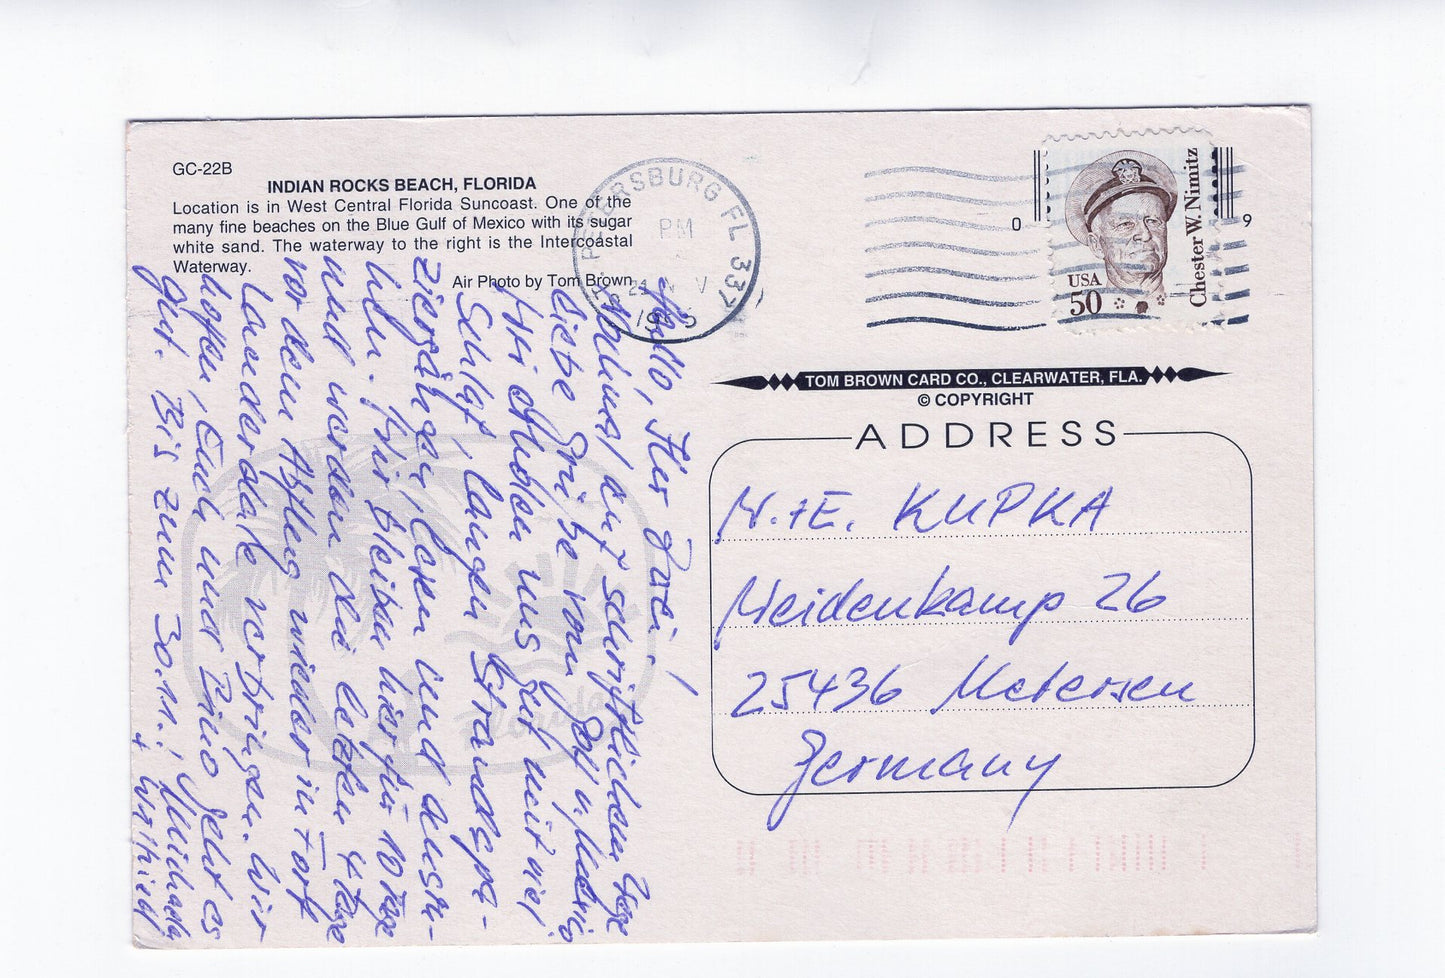 GC-22B
INDIAN ROCKS BEACH, FLORIDA
Location is in West Central Florida Suncoast. One of the
many fine beaches on the Blue Gulf of Mexico with its sugar
white sand. The waterway to the right is the Intercoastal
Waterway.
Air Photo by Tom Brown
ST. PETERSBURG FL 337
PM
1995
USA
50
Chester W. Nimitz
0
9
TOM BROWN CARD CO., CLEARWATER, FLA.
© COPYRIGHT
ADDRESS
KUPKA
26
25436
Germany
Florida
Hallo, Ihr
Nochmal auf schriftlichem Wege
liebe Grüße von
Wir erholen uns gut mit viel
Schlaf, langen Strandspa-
ziergängen, lesen und ausru-
hen. Wir bleiben hier für 10 Tage
und werden die letzten 4 Tage
vor dem Abflug wieder in Fort
Lauderdale verbringen. Wir
hoffen, Euch und geht es
gut. Bis zum 30.11.!